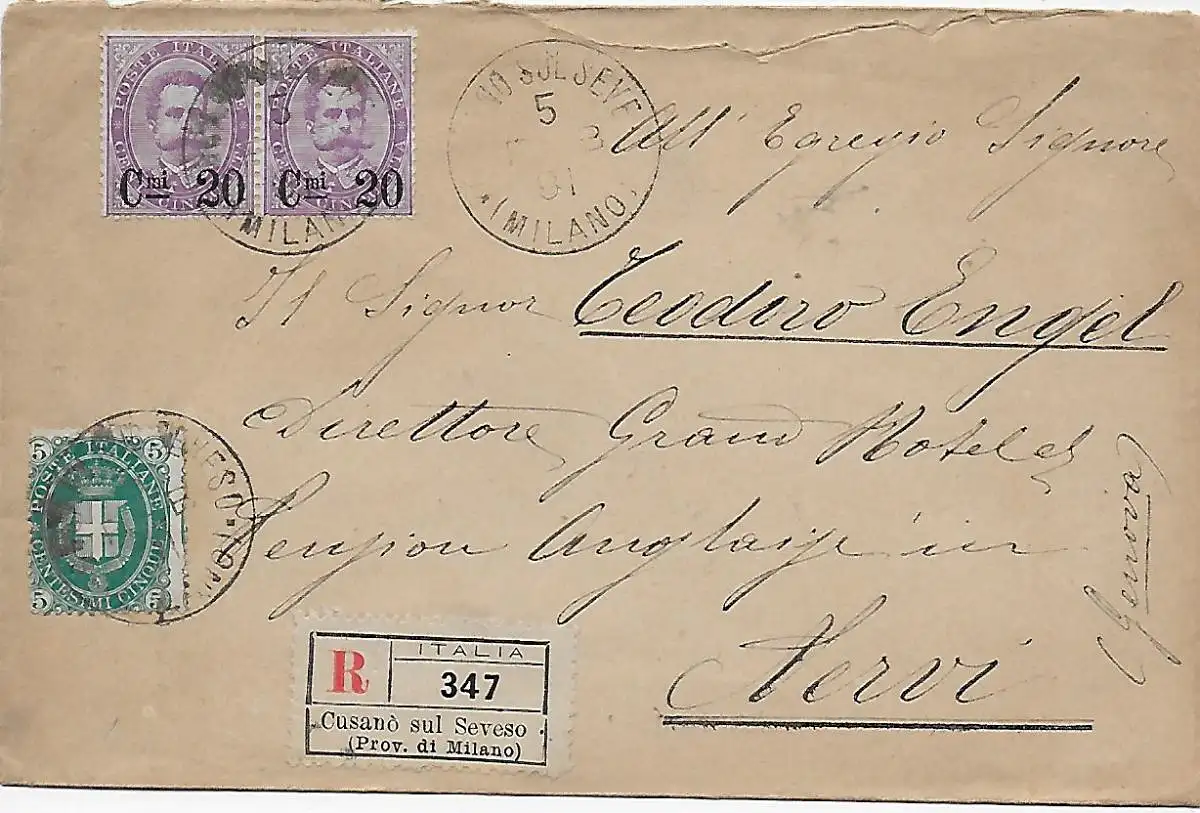 POSTE ITALIANE
Cmi 20
POSTE ITALIANE
Cmi 20
(MILANO)
NO SUL SEVE
5
91
(MILANO)
All' Egregio Signore
Il Signor Teodoro Engel
Direttore Grand Hotel et
Pension Anglaise in
Nervi
(Genova)
5 5
POSTE ITALIANE
CENTESIMI CINQUE
5 5
SEVESO
R
ITALIA
347
Cusanò sul Seveso
(Prov. di Milano)